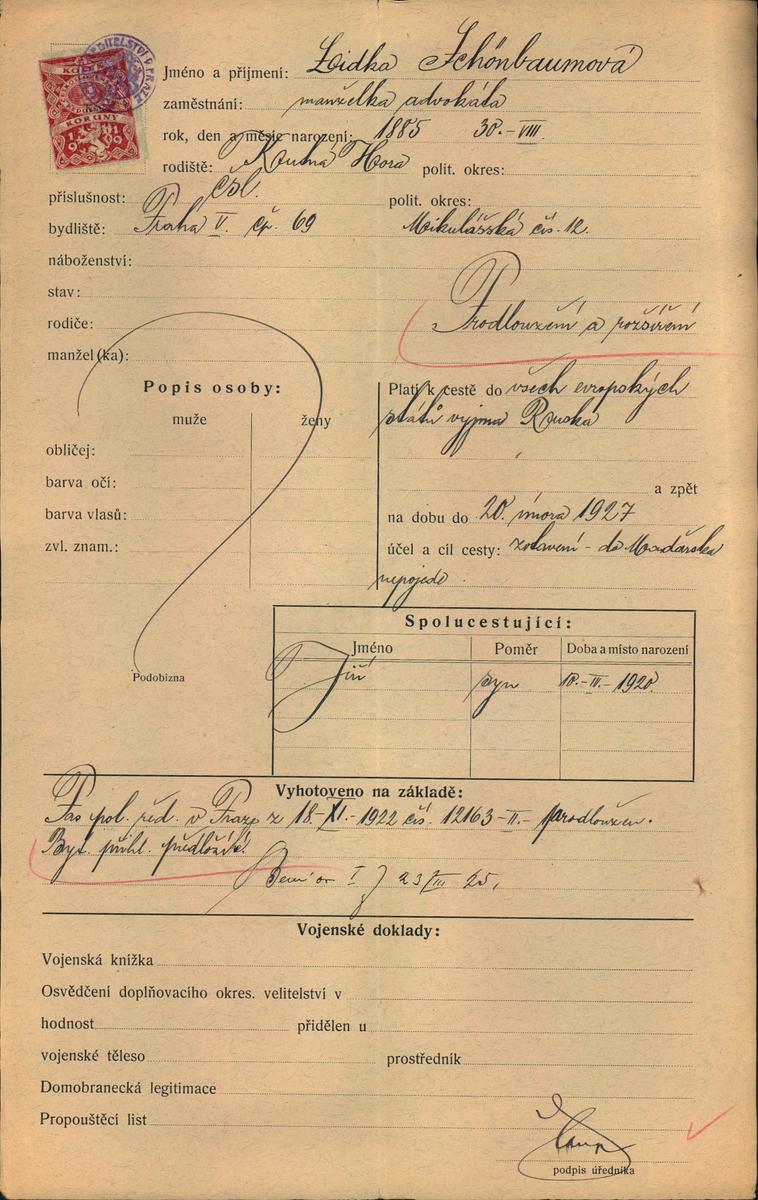 KORUNY
1919
Jméno a příjmení: Lidka Schönbaumová
zaměstnání: manželka advokáta
rok, den a měsíc narození: 1885 30.-VIII.
rodiště: Kutná Hora polit. okres:
příslušnost: Čsl. polit. okres:
bydliště: Praha V. čp. 69 Mikulášská čís. 12.
náboženství:
stav:
rodiče: Prodloužení a rozšíření
manžel(ka):
Popis osoby:
muže ženy
obličej:
barva očí:
barva vlasů:
zvl. znam.:
Platí k cestě do všech evropských
států vyjma Ruska
a zpět
na dobu do 20. února 1927
účel a cíl cesty: zotavení - do Maďarska
nepojede.
Podobizna
Spolucestující:
Jméno Poměr Doba a místo narození
Jiří syn
Vyhotoveno na základě:
Pas pol. řed. v Praze z 18.-XI.-1922 čís. 12163-II.- prodloužen.
Byt. přihl.
I 23/III 25.
Vojenské doklady:
Vojenská knížka
Osvědčení doplňovacího okres. velitelství v
hodnost přidělen u
vojenské těleso prostředník
Domobranecká legitimace
Propouštěcí list
podpis úředníka